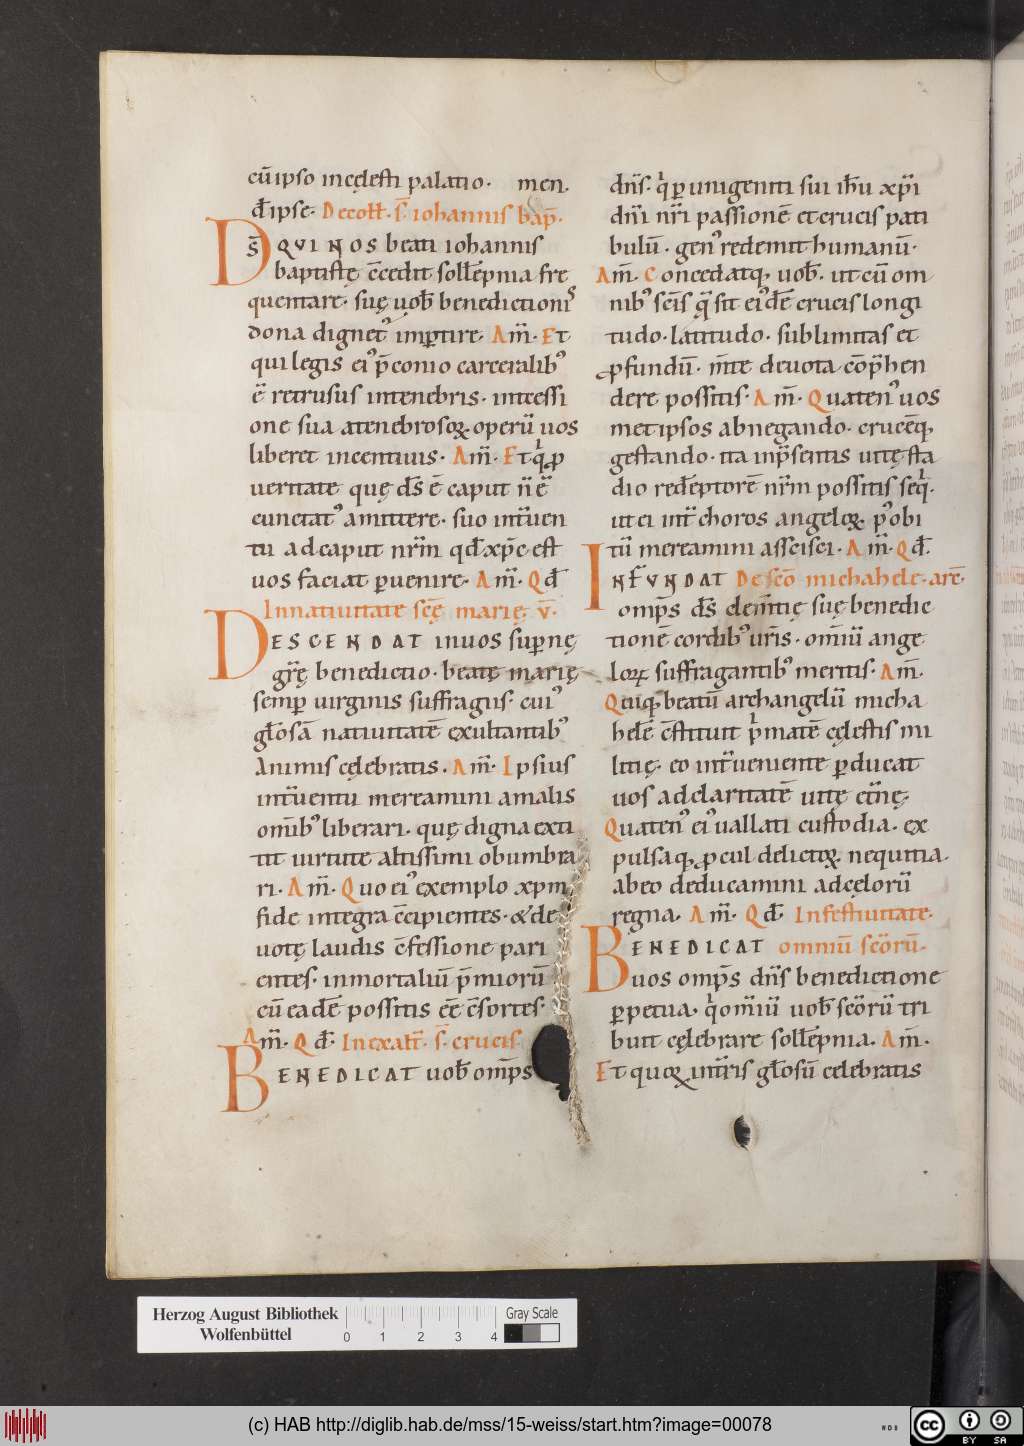 cū ipso in cęlesti palatio. men.
d̄ ipse. Decoll̄. s̄. iohannis bap̄.
Ds̄ QVI NOS beati iohannis
baptistę c̄cedit soll̄epnia fre
quentare. suę uob̄ benedictionis
dona dignet᷒ imptire. Am̄. Et
qui legis ei᷒ p̄conio carceralib᷒
ē retrusus in tenebris. int̄cessi
one sua a tenebrosoꝝ operū uos
liberet incentiuis. Am̄. Et qͥ ꝓ
ueritate quę ds̄ ē caput n̄ ē
cunctat᷒ amittere. suo int̄uen
tu ad caput nr̄m qd̄ xp̄c est
uos faciat ꝑuenire. Am̄. Qd̄
In natiuitate scę̄ marię. v̄.
DESCENDAT in uos suꝑnę
gr̄ę benedictio. beatę marię
semꝑ uirginis suffragiis. cui᷒
gl̄osā natiuitatē exultantib᷒
animis cęlebratis. Am̄. Ipsius
int̄uentu mereamini a malis
om̄ib᷒ liberari. quę digna exti
tit uirtute altissimi obumbra
ri. Am̄. Quo ei᷒ exemplo xpm̄
fide integra c̄cipientes. & de
uotę laudis c̄fessione pari
entes. inmortaliū p̄miorū
cū eadē possitis ēē c̄sortes.
Am̄. Qd̄. In exalt̄. s̄. crucis.
BENEDICAT uob̄ omp̄s
dn̄s. qͥ ꝑ unigeniti sui ih̄u xp̄i
dn̄i nr̄i passionē et crucis pati
bulū. gen᷒ redemit humanū.
Am̄. Concedatq; uob̄. ut cū om
nib᷒ scīs q̄ sit ei᷒dē crucis longi
tudo. latitudo. sublimitas et
ꝓfundū. m̄te deuota cōp̄hen
dere possitis. Am̄. Quaten᷒ uos
metipsos abnegando. crucēq;
gestando. ita in p̄sentis uitę sta
dio redēptorē nr̄m possitis seqͥ.
ut ei int̄ choros angeloꝝ p᷒ obi
tū mereamini asscisci. Am̄. Qd̄.
INFVNDAT De scō michahele. arc̄.
omp̄s ds̄ clem̄tię suę benedic
tionē cordib᷒ ur̄is. om̄iū ange
loꝝ suffragantib᷒ meritis. Am̄.
Quiq; beatū archangelū micha
helē c̄stituit pͥmatē cęlestis mi
litię. eo int̄ueniente ꝑducat
uos ad claritatē uitę et̄nę.
Quaten᷒ ei᷒ uallati custodia. ex
pulsaq; ꝓcul delictoꝝ nequitia.
ab eo deducamini ad cęlorū
regna. Am̄. Qd̄. In festiuitate.
BENEDICAT omniū scōrū.
uos omp̄s dn̄s benedictione
ꝑpetua. qͥ om̄iū uob̄ scōrū tri
buit cęlebrare soll̄epnia. Am̄.
Et quoꝝ int̄ris gl̄osū celebratis
Herzog August Bibliothek
Wolfenbüttel
0 1 2 3 4
Gray Scale
(c) HAB http://diglib.hab.de/mss/15-weiss/start.htm?image=00078
cc BY SA